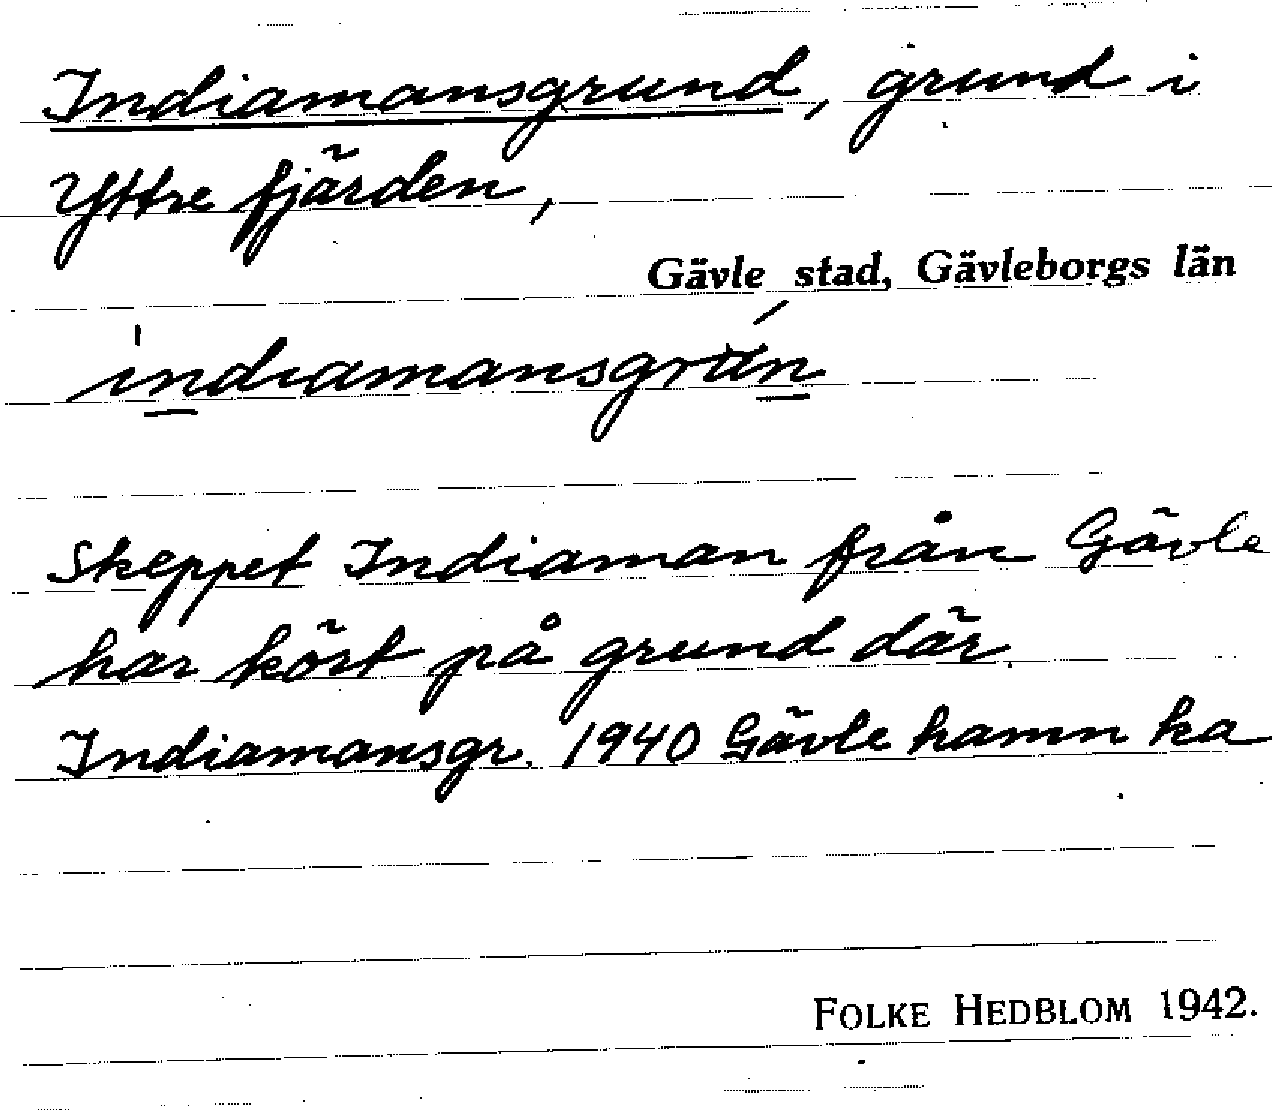 Indiamansgrund, grund i
Yttre fjärden,
Gävle stad, Gävleborgs län
indiamansgrún
Skeppet Indiaman från Gävle
har kört på grund där.
Indiamansgr. 1940 Gävle hamn ka
FOLKE HEDBLOM 1942.